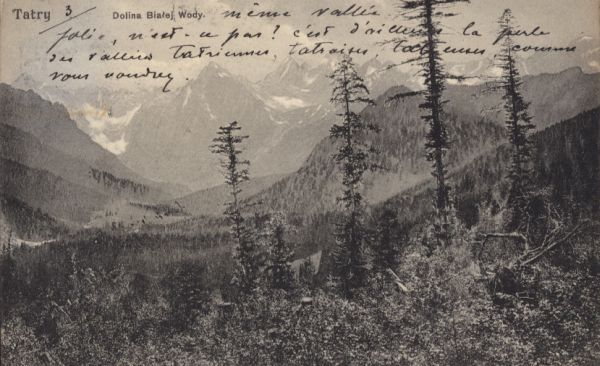 Tatry 3/ Dolina Białej Wody. même vallée.
jolie, n'est-ce pas? c'est d'ailleurs la perle
des vallées tatriennes, tatraises, tatreuses comme
vous voudrez.